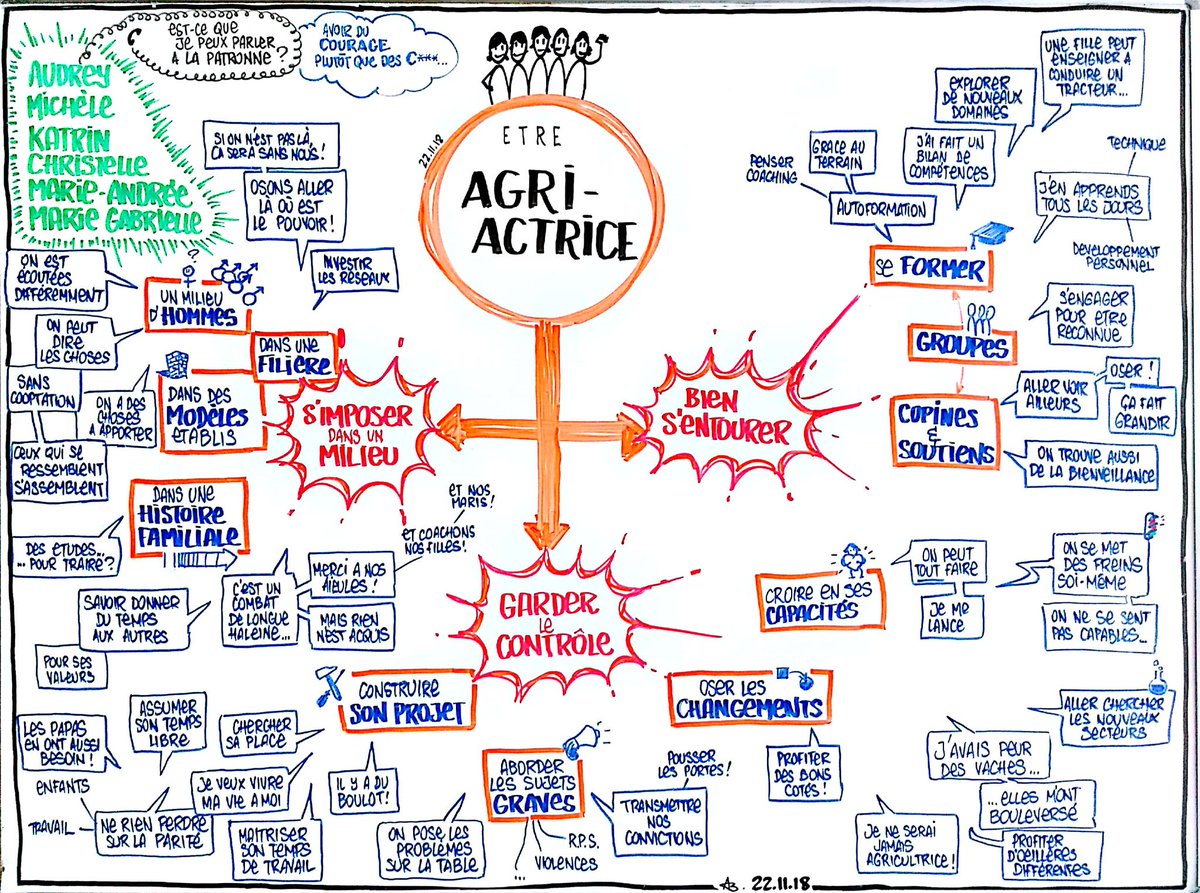 EST-CE QUE
JE PEUX PARLER
A LA PATRONNE ?
AVOIR DU
COURAGE
PLUTÔT QUE DES C***...
AUDREY
MICHÈLE
KATRIN
CHRISTELLE
MARIE-ANDRÉE
MARIE GABRIELLE
22.11.18
ETRE
AGRI-
ACTRICE
SI ON N'EST PAS LÀ,
CA SERA SANS NOUS !
OSONS ALLER
LÀ OÙ EST
LE POUVOIR !
INVESTIR
LES RESEAUX
ON EST
ÉCOUTÉES
DIFFÉREMMENT
?
UN MILIEU
D'HOMMES
ON PEUT
DIRE
LES CHOSES
DANS UNE
FILIÈRE
SANS
COOPTATION
ON A DES
CHOSES
A APPORTER
DANS DES
MODÈLES
ETABLIS
CEUX QUI SE
RESSEMBLENT
S'ASSEMBLENT
S'IMPOSER
DANS UN
MILIEU
DANS UNE
HISTOIRE
FAMILIALE
DES ETUDES...
...POUR TRAIRE ?
C'EST UN
COMBAT
DE LONGUE
HALEINE...
MERCI A NOS
AÏEULES !
ET COACHONS
NOS FILLES !
ET NOS
MARIS !
MAIS RIEN
N'EST ACQUIS
BIEN
S'ENTOURER
SE FORMER
PENSER
COACHING
GRACE AU
TERRAIN
AUTOFORMATION
J'AI FAIT UN
BILAN DE
COMPÉTENCES
EXPLORER
DE NOUVEAUX
DOMAINES
UNE FILLE PEUT
ENSEIGNER A
CONDUIRE UN
TRACTEUR...
TECHNIQUE
J'EN APPRENDS
TOUS LES JOURS
DEVELOPPEMENT
PERSONNEL
GROUPES
S'ENGAGER
POUR ETRE
RECONNUE
COPINES
&
SOUTIENS
ALLER VOIR
AILLEURS
OSER !
ÇA FAIT
GRANDIR
ON TROUVE AUSSI
DE LA BIENVEILLANCE
GARDER
LE
CONTRÔLE
CROIRE EN SES
CAPACITÉS
ON PEUT
TOUT FAIRE
JE ME
LANCE
ON SE MET
DES FREINS
SOI-MÊME
ON NE SE SENT
PAS CAPABLES...
OSER LES
CHANGEMENTS
PROFITER
DES BONS
COTÉS !
ALLER CHERCHER
LES NOUVEAUX
SECTEURS
J'AVAIS PEUR
DES VACHES...
...ELLES M'ONT
BOULEVERSÉ
JE NE SERAI
JAMAIS
AGRICULTRICE !
PROFITER
D'OEILLÈRES
DIFFÉRENTES
ABORDER
LES SUJETS
GRAVES
ON POSE LES
PROBLÈMES
SUR LA TABLE
...
VIOLENCES
R.P.S.
TRANSMETTRE
NOS
CONVICTIONS
POUSSER
LES PORTES !
CONSTRUIRE
SON PROJET
SAVOIR DONNER
DU TEMPS
AUX AUTRES
POUR SES
VALEURS
ASSUMER
SON TEMPS
LIBRE
CHERCHER
SA PLACE
LES PAPAS
EN ONT AUSSI
BESOIN !
ENFANTS
TRAVAIL
NE RIEN PERDRE
SUR LA PARITÉ
JE VEUX VIVRE
MA VIE A MOI
MAITRISER
SON TEMPS
DE TRAVAIL
IL Y A DU
BOULOT !
22.11.18